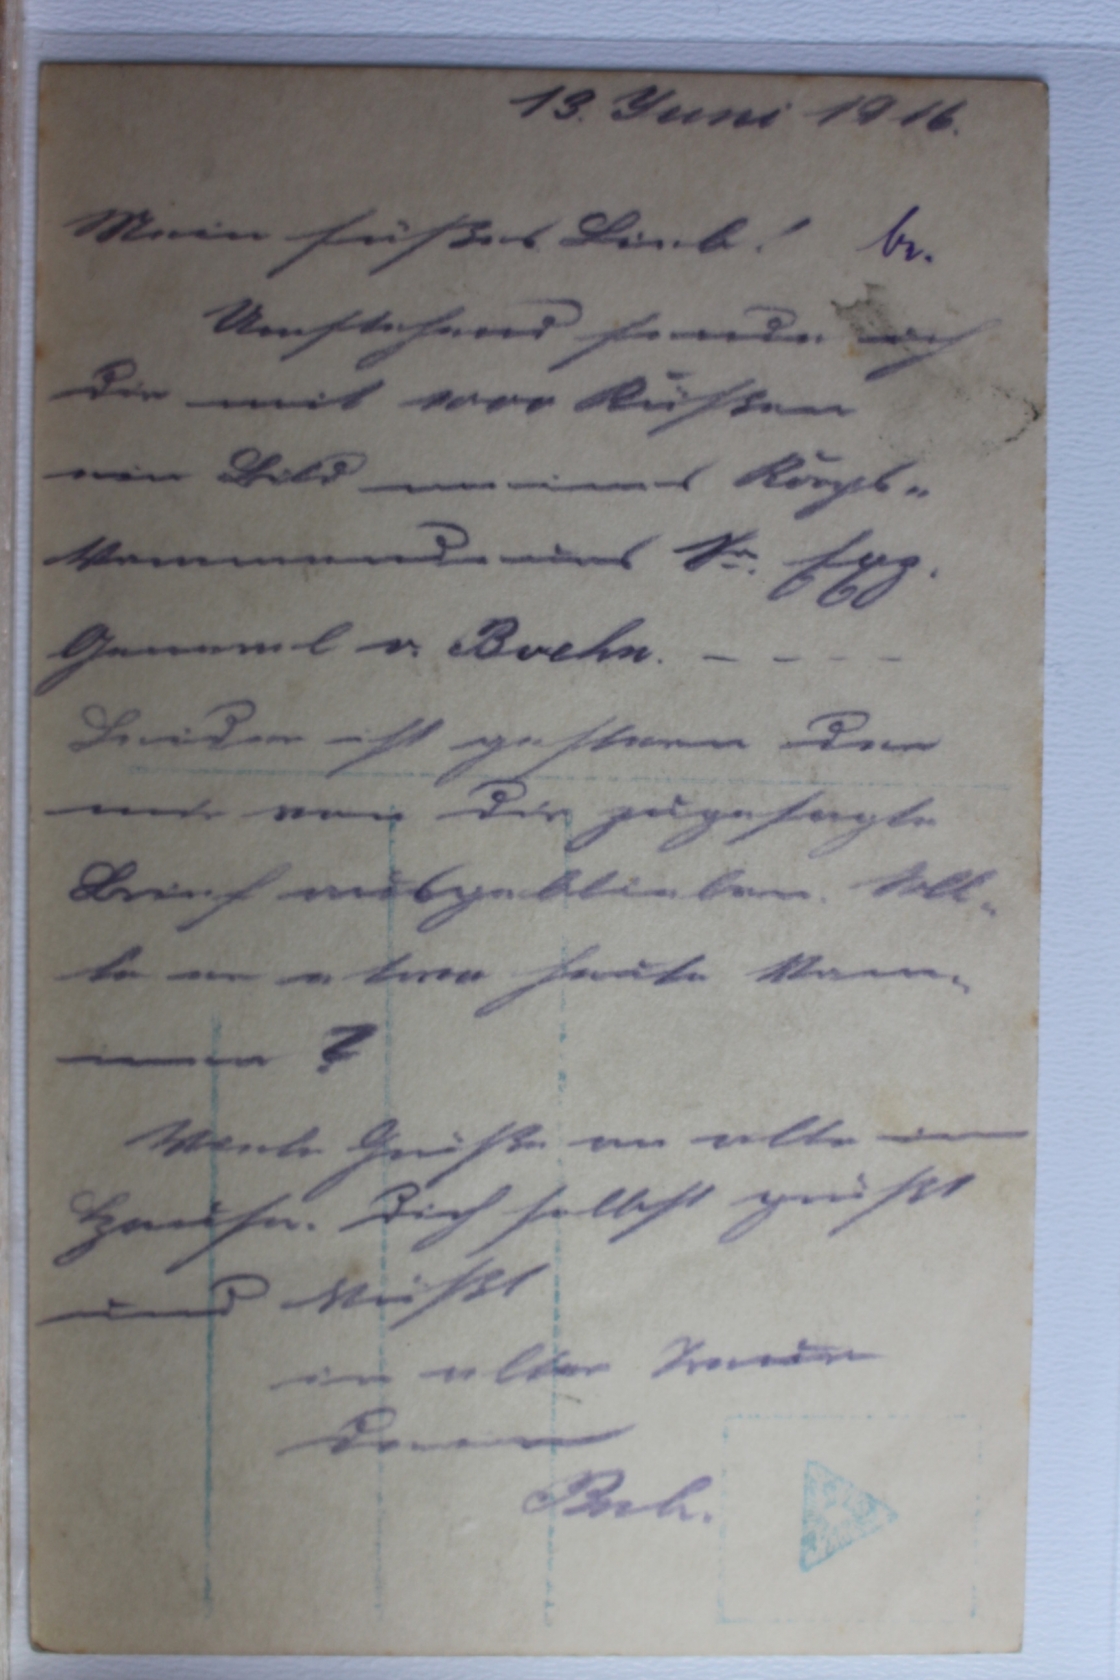 13. Juni 1916.
Mein süßes Lieb! br.
Umstehend sende ich
Dir mit 1000 Küßen
ein Bild meines Korps-
kommandeurs Sr. Exz.
General v. Boehn. – – – –
Leider ist gestern der
mir von Dir zugesagte
Brief ausgeblieben. Soll-
te er etwa heute kom-
men?
Viele Grüße an alle im
Hause. Dich selbst grüßt
und küßt
in alter Treue
Dein
Bub.